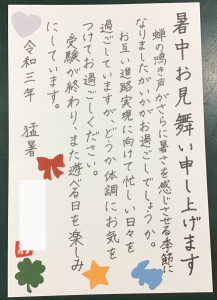 暑中お見舞い申し上げます
蝉の鳴き声がさらに暑さを感じさせる季節に
なりましたがいかがお過ごしでしょうか。
お互い進路実現に向けて忙しい日々を
過ごしていますが、どうか体調にお気を
つけてお過ごしください。
受験が終わり、また遊べる日を楽しみ
にしています。
令和三年　猛暑